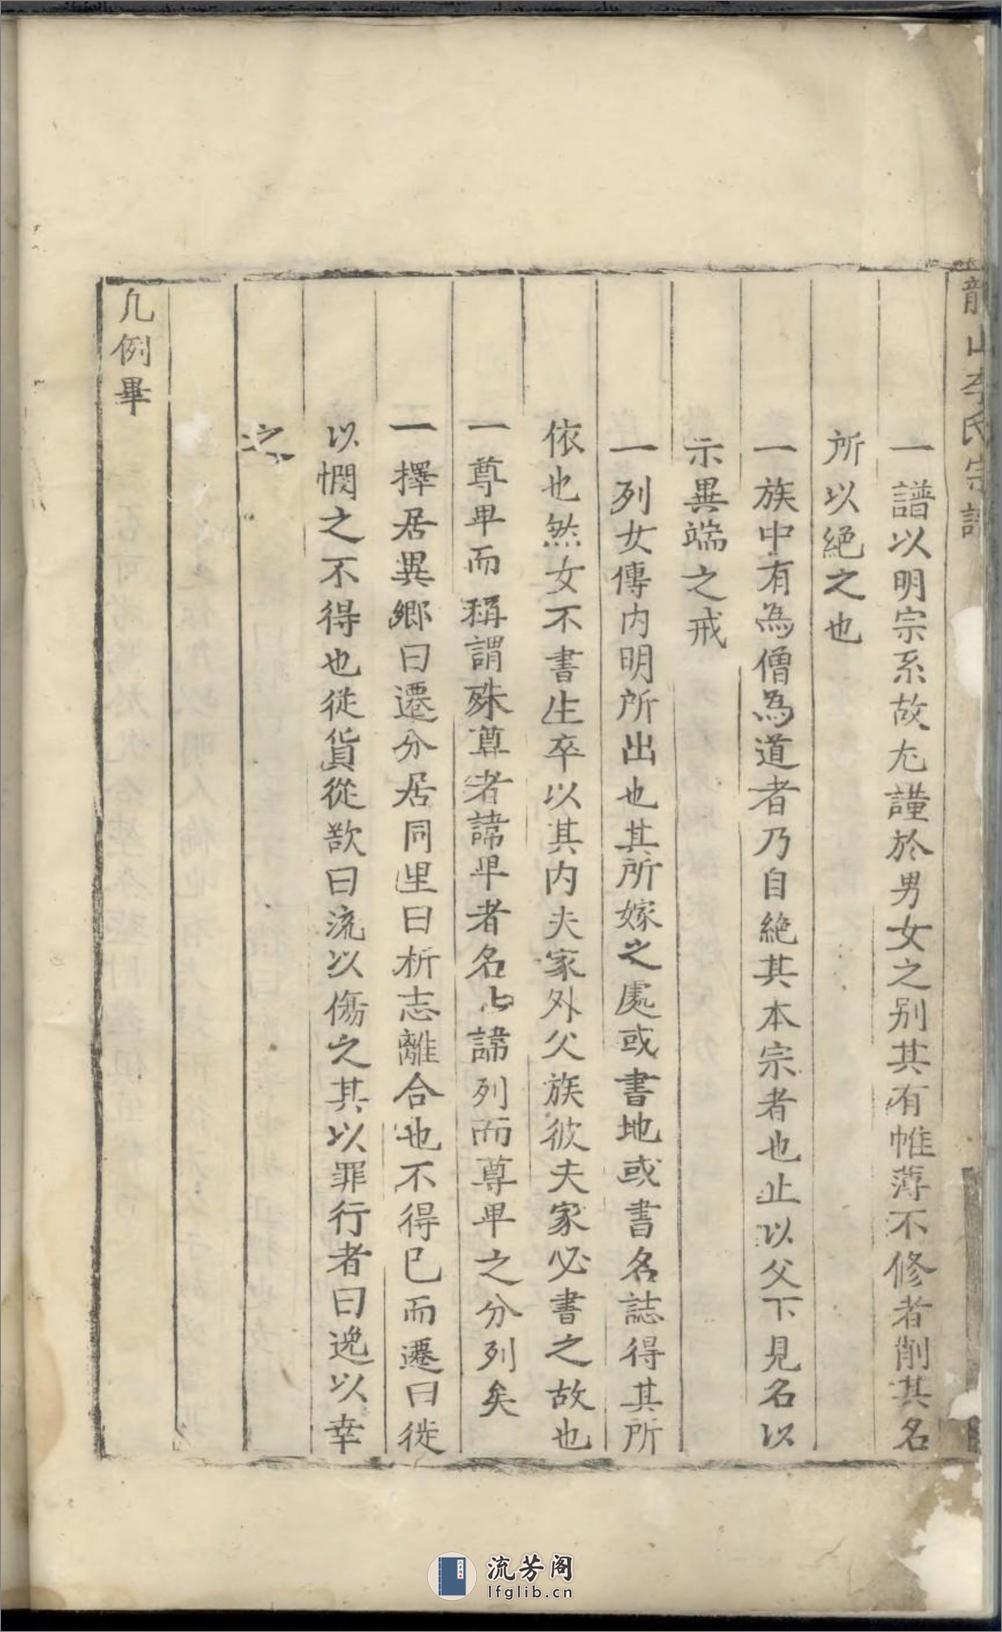 龍山李氏宗譜
一譜以明宗系故尤謹於男女之别其有帷薄不修者削其名
所以絕之也
一族中有為僧為道者乃自絕其本宗者也止以父下見名以
示異端之戒
一列女傳内明所出也其所嫁之處或書地或書名誌得其所
依也然女不書生卒以其内夫家外父族彼夫家必書之故也
一尊卑而稱謂殊尊者諱卑者名名諱列而尊卑之分列矣
一擇居異鄉曰遷分居同里曰析志離合也不得已而遷曰徙
以憫之不得也從貨從欲曰流以傷之其以罪行者曰逸以幸
之
凡例畢
流芳阁
lfglib.cn